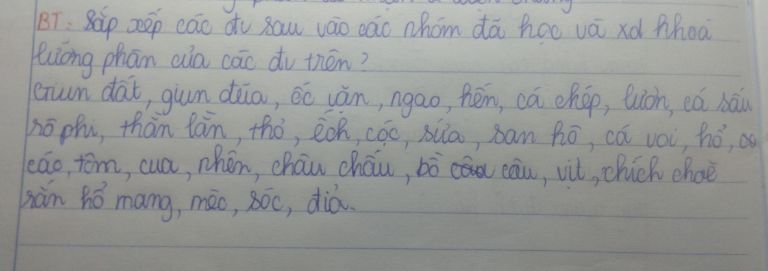 BT: Sắp xếp các đv sau vào các nhóm đã học và xd khoá
lưỡng phân của các đv trên?
Giun đất, giun đũa, ốc vặn, ngao, hến, cá chép, lươn, cá sấu
rô phi, thằn lằn, thỏ, ếch, cóc, sứa, san hô, cá voi, hổ,
cáo, tôm, cua, nhện, châu chấu, bồ câu, vịt, chích choè
rắn hổ mang, mèo, sóc, đỉa.